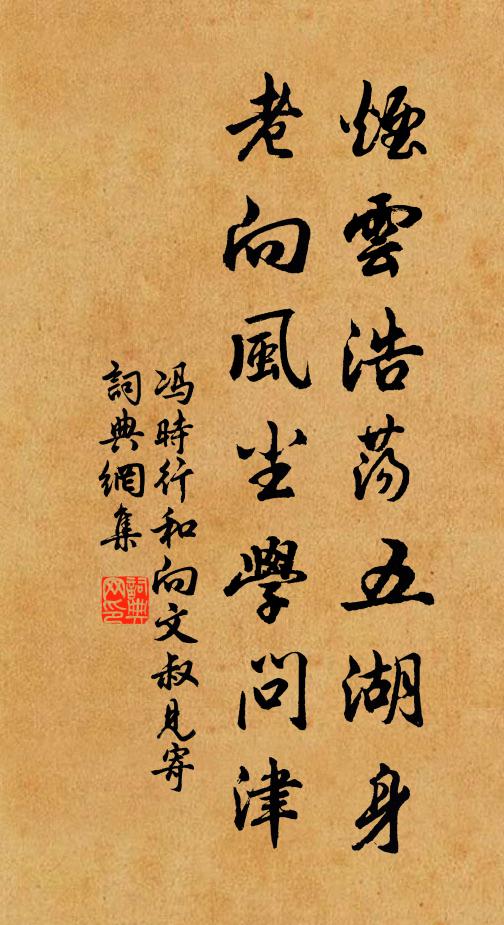 煙雲浩荡五湖身
老向風尘學問津
冯時行和向文叔見寄
詞典網集
詞典
网印